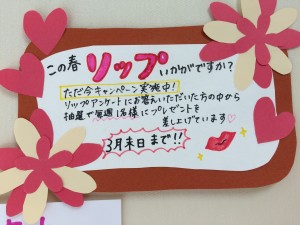 この春リップいかがですか？
ただ今キャンペーン実施中！
リップアンケートにお答えいただいた方の中から
抽選で毎週1名様にプレゼントを
差し上げています♡
3月末日まで!!